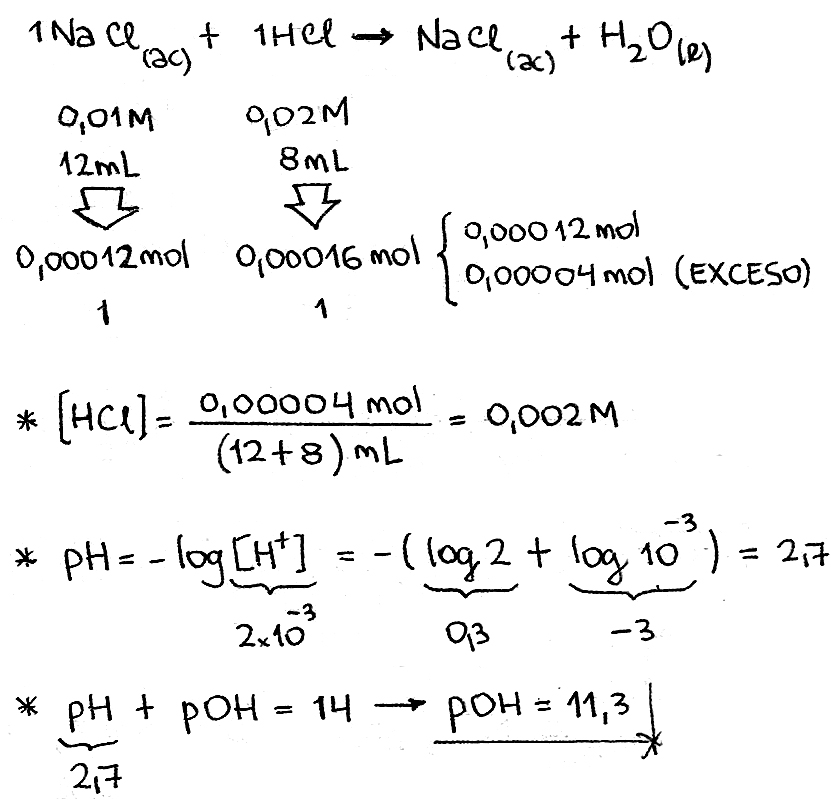 1NaCl(ac) + 1HCl → NaCl(ac) + H₂O(l)
0,01M 0,02M
12mL 8mL
0,00012mol 0,00016mol { 0,00012mol
0,00004mol (EXCESO)
1 1
* [HCl] = 0,00004 mol / (12+8) mL = 0,002M
* pH = -log [H⁺] = -( log 2 + log 10⁻³ ) = 2,7
2x10⁻³ 0,3 -3
* pH + pOH = 14 → pOH = 11,3
2,7